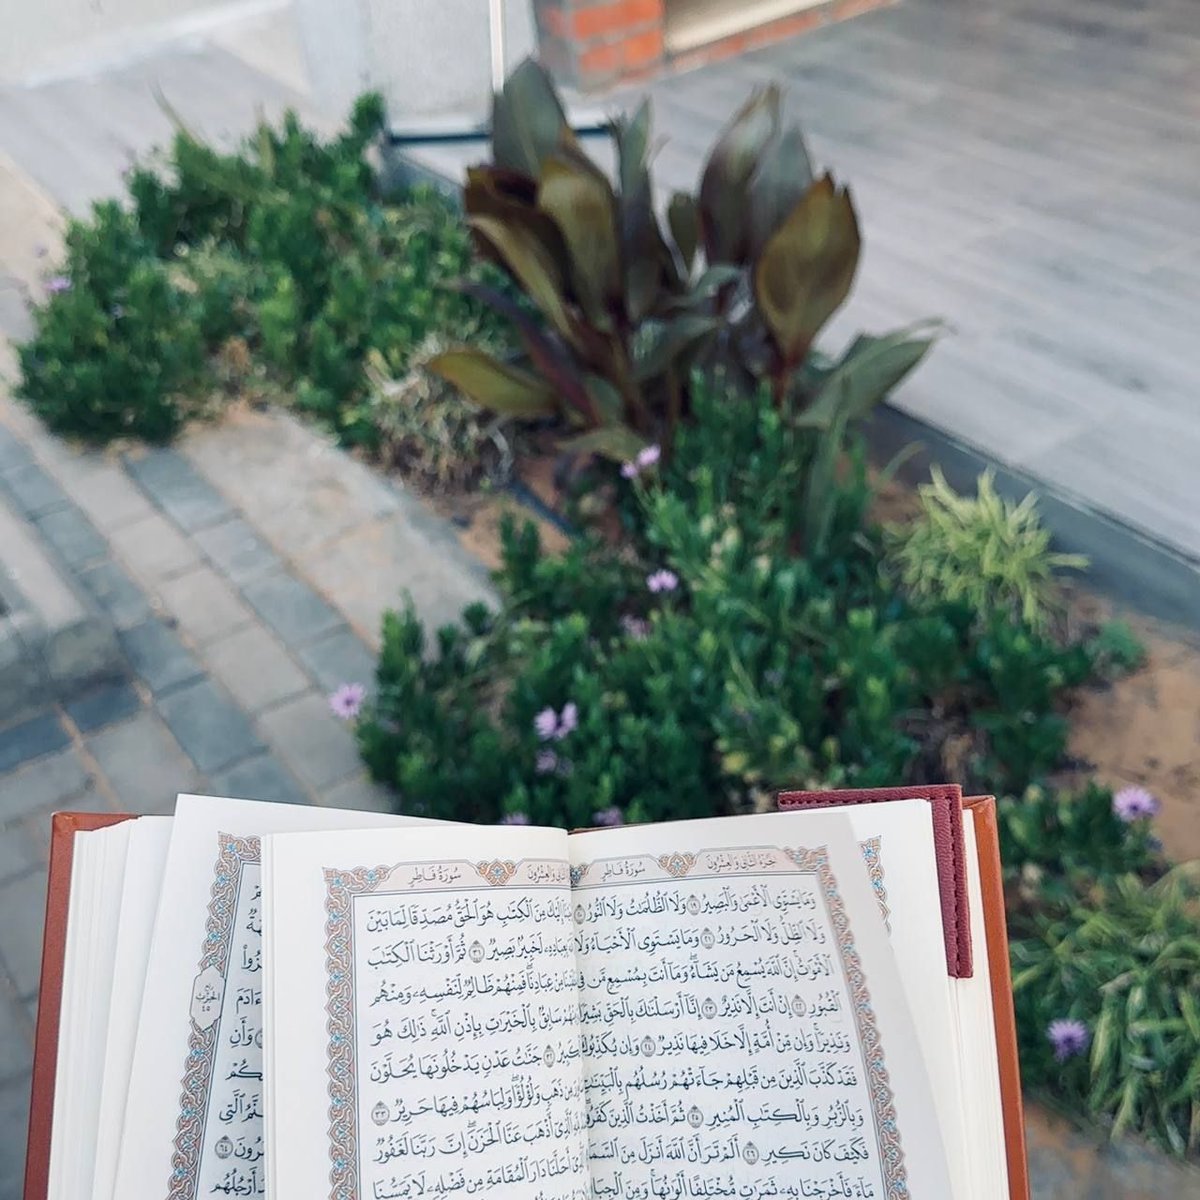 سُورَةُ فَاطِرٍ الجُزْءُ الثَّانِي وَالْعِشْرُونَ
وَمَا يَسْتَوِى ٱلْأَعْمَىٰ وَٱلْبَصِيرُ ١٩ وَلَا ٱلظُّلُمَٰتُ وَلَا ٱلنُّورُ ٢٠
وَلَا ٱلظِّلُّ وَلَا ٱلْحَرُورُ ٢١ وَمَا يَسْتَوِى ٱلْأَحْيَآءُ وَلَا
ٱلْأَمْوَٰتُ إِنَّ ٱللَّهَ يُسْمِعُ مَن يَشَآءُ وَمَآ أَنتَ بِمُسْمِعٍ مَّن فِى
ٱلْقُبُورِ ٢٢ إِنْ أَنتَ إِلَّا نَذِيرٌ ٢٣ إِنَّآ أَرْسَلْنَٰكَ بِٱلْحَقِّ بَشِيرًا
وَنَذِيرًا وَإِن مِّنْ أُمَّةٍ إِلَّا خَلَا فِيهَا نَذِيرٌ ٢٤ وَإِن يُكَذِّبُوكَ
فَقَدْ كَذَّبَ ٱلَّذِينَ مِن قَبْلِهِمْ جَآءَتْهُمْ رُسُلُهُم بِٱلْبَيِّنَٰتِ
وَبِٱلزُّبُرِ وَبِٱلْكِتَٰبِ ٱلْمُنِيرِ ٢٥ ثُمَّ أَخَذْتُ ٱلَّذِينَ كَفَرُوا۟
فَكَيْفَ كَانَ نَكِيرِ ٢٦ أَلَمْ تَرَ أَنَّ ٱللَّهَ أَنزَلَ مِنَ ٱلسَّمَآءِ
مَآءً فَأَخْرَجْنَا بِهِۦ ثَمَرَٰتٍ مُّخْتَلِفًا أَلْوَٰنُهَا وَمِنَ ٱلْجِبَالِ
وَالْعِشْرُونَ سُورَةُ فَاطِرٍ
إِلَيْكَ مِنَ ٱلْكِتَٰبِ هُوَ ٱلْحَقُّ مُصَدِّقًا لِّمَا بَيْنَ
بِعِبَادِهِۦ لَخَبِيرٌۢ بَصِيرٌ ٣١ ثُمَّ أَوْرَثْنَا ٱلْكِتَٰبَ
مِنْ عِبَادِنَا فَمِنْهُمْ ظَالِمٌ لِّنَفْسِهِۦ وَمِنْهُم
سَابِقٌۢ بِٱلْخَيْرَٰتِ بِإِذْنِ ٱللَّهِ ذَٰلِكَ هُوَ
ٱلْكَبِيرُ ٣٢ جَنَّٰتُ عَدْنٍ يَدْخُلُونَهَا يُحَلَّوْنَ
مِن ذَهَبٍ وَلُؤْلُؤًا وَلِبَاسُهُمْ فِيهَا حَرِيرٌ ٣٣
ٱلَّذِىٓ أَذْهَبَ عَنَّا ٱلْحَزَنَ إِنَّ رَبَّنَا لَغَفُورٌ
أَحَلَّنَا دَارَ ٱلْمُقَامَةِ مِن فَضْلِهِۦ لَا يَمَسُّنَا
ءَادَمَ
وَأَنِ
ٱلَّتِى
٦٤
أَرْجُلُهُم